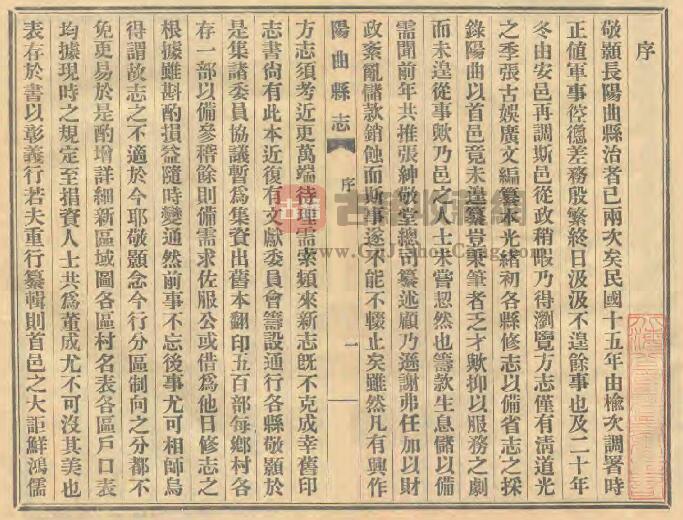 序
敬顥長陽曲縣治者已兩次矣民國十五年由檢次調署時
正値軍事倥傯差務殷繁終日汲汲不遑餘事也及二十年
冬由安邑再調斯邑從政稍暇乃得瀏覽方志僅有淸道光
之季張古娛廣文編纂本光緒初各縣修志以備省志之採
錄陽曲以首邑竟未遑纂豈秉筆者乏才歟抑以服務之劇
而未遑從事歟乃邑之人士未嘗恝然也籌款生息儲以備
需聞前年共推張紳敬堂總司纂述顧乃遜謝弗任加以財
政紊亂儲款銷蝕而斯事遂不能不輟止矣雖然凡有興作
陽曲縣志
序
一
方志須考近更萬端待理需索類來新志旣不克成幸舊印
志書尙有此本近復有文獻委員會籌設通行各縣敬顥於
是集諸委員協議暫爲集資出舊本翻印五百部每鄉村各
存一部以備參稽餘則備需求佐服公或借爲他日修志之
根據雖斟酌損益隨時變通然前事不忘後事尤可相師烏
得謂故志之不適於今耶敬顥念今行分區制向之分都不
免更易於是酌增詳細新區域圖各區村名表各區戶口表
均據現時之規定至捐資人士共爲董成尤不可沒其美也
表存於書以彰義行若夫重行纂輯則首邑之大詎鮮鴻儒
古籍收藏網
GujishouCang.com